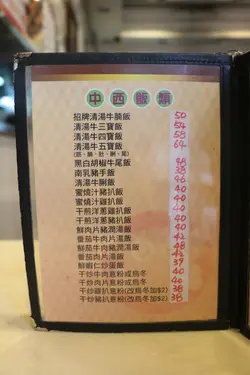 中西飯類
招牌清湯牛腩飯 50
清湯牛三寶飯 54
清湯牛四寶飯 58
清湯牛五寶飯 64
黑白胡椒牛尾飯 48
南乳豬手飯 38
清湯牛脷飯 46
蜜燒汁豬扒飯 40
蜜燒汁雞扒飯 40
干煎洋蔥雞扒飯 40
干煎洋蔥豬扒飯 40
鮮肉片豬潤湯飯 40
番茄牛肉片湯飯 42
鮮茄肉片豬潤湯飯 48
番茄肉片湯飯 42
鮮蝦仁炒蛋飯 39
干炒牛肉意粉或烏冬 40
干炒豬肉意粉或烏冬 40
干炒雞扒意粉(改烏冬加$2) 38
干炒豬扒意粉(改烏冬加$2) 38